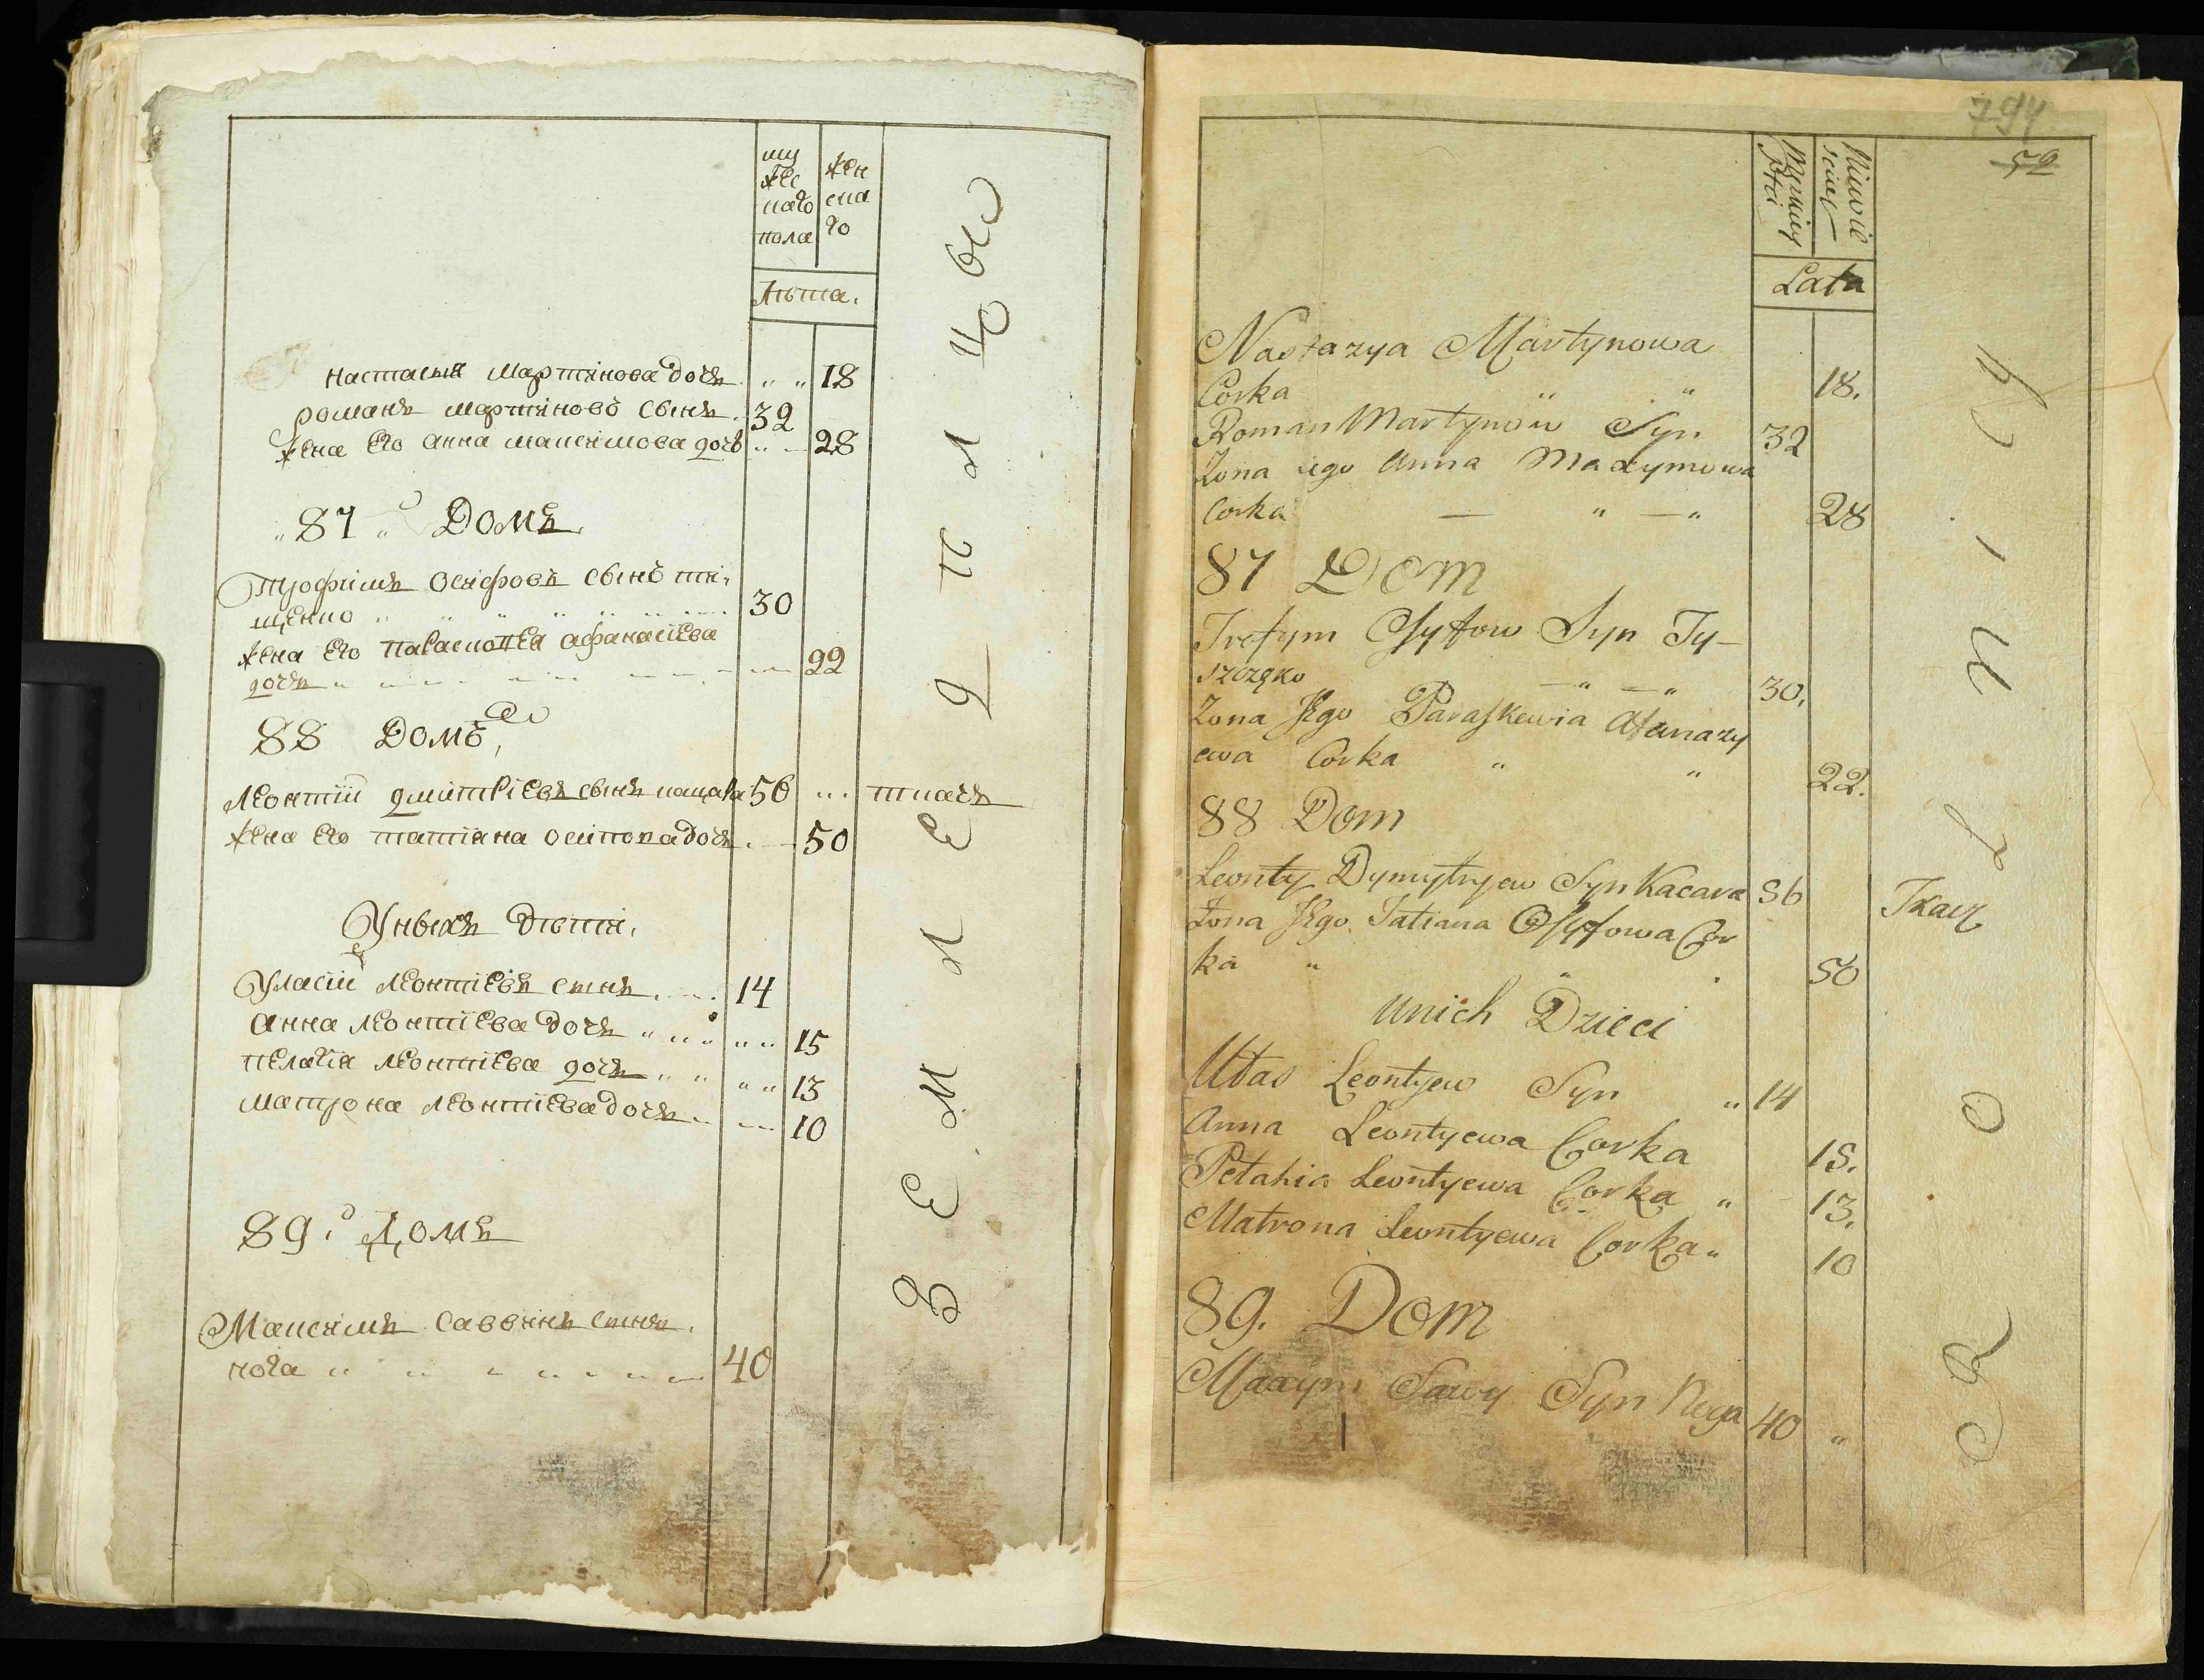 му
же
ского
пола
жен
ска
го
Лѣта.
настасия Мартинова дочь „ „ 18
романъ мартиновъ сынъ . 32
жена Его анна максимова дочь „ — 28
„ 87 „ Домъ
Трофимъ осифовъ сынъ ти,
щенко „ „ „ „ 30
жена Его парасковея афанасиева
дочь „ — — 22
88 Домъ
Леонтий дмитриевъ сынъ кацара 56 ... ткачъ
жена Его татияна осипова дочь . — 50
Уныхъ дѣти,
Уласий леонтиевъ сынъ . — . 14
анна леонтиева дочь „ „ „ „ „ 15
пелагия леонтиева дочь „ „ „ „ 13
матрона леонтиева дочь „ — 10
89. Домъ
Максимъ саввинъ сынъ,
нога „ „ „ „ „ 40
794
52
Lata
Nastazya Martynowa
Corka „ „ 18.
Roman Martynow Syn 32
Zona iego Anna Maxymowa
Corka — „ — „ 28
87 Dom
Trofym Osyfow Syn Ty-
szczęko — „ — „ 30.
Zona Jego Paraskewia Afanazy
ewa Corka „ „ 22.
88 Dom
Leonty Dymytryew Syn Kacara 56 Tkacz
Zona Jego Tatiana Osyfowa Cor
ka „ „ 50
Unich Dzieci
Ułas Leontyew Syn „ 14
Anna Leontyewa Corka 15.
Pełahia Leontyewa Corka „ 13.
Matrona Leontyewa Corka „ 10
89. Dom
Maxym Sawy Syn Noga 40 „